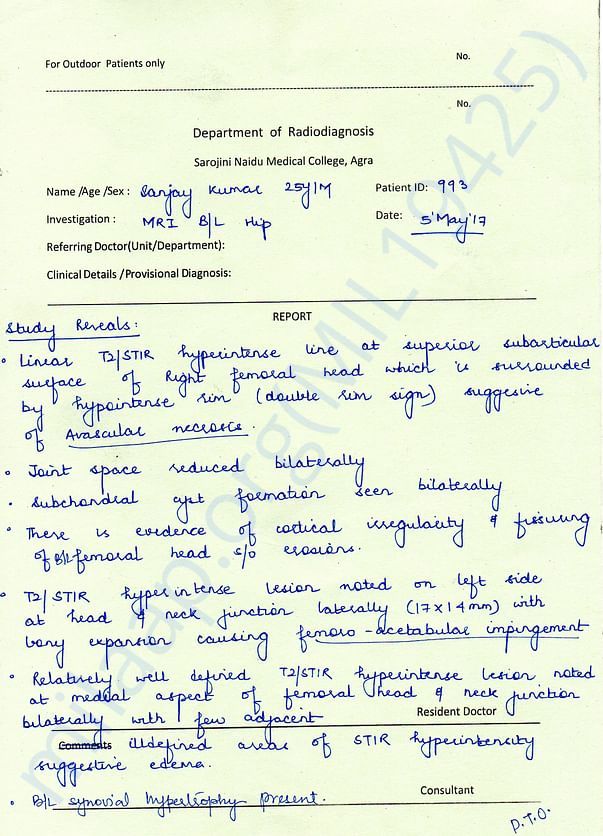 For Outdoor Patients only
No.
No.
Department of Radiodiagnosis
Sarojini Naidu Medical College, Agra
Name /Age /Sex : Sanjay Kumar 25y/M
Patient ID: 993
Investigation : MRI B/L Hip
Date: 5 May'17
Referring Doctor(Unit/Department):
Clinical Details /Provisional Diagnosis:
REPORT
Study Reveals:
• Linear T2/STIR hyperintense line at superior subarticular
surface of Right femoral head which is surrounded
by hypointense rim (double rim sign) suggesive
of Avascular necrosis.
• Joint space reduced bilaterally
• Subchondral cyst formation seen bilaterally
• There is evidence of cortical irregularity & fissuring
of B/L femoral head s/o erosions.
• T2/STIR hyperintense lesion noted on left side
at head & neck junction laterally (17x14mm) with
bony expansion causing femoro-acetabular impingement
• Relatively well defined T2/STIR hyperintense lesion noted
at medial aspect of femoral head & neck junction
bilaterally with few adjacent
Resident Doctor
Comments illdefined areas of STIR hyperintensity
suggestive edema.
• B/L synovial hypertrophy present.
Consultant
P.T.O.
milaap.org(MIL19425)